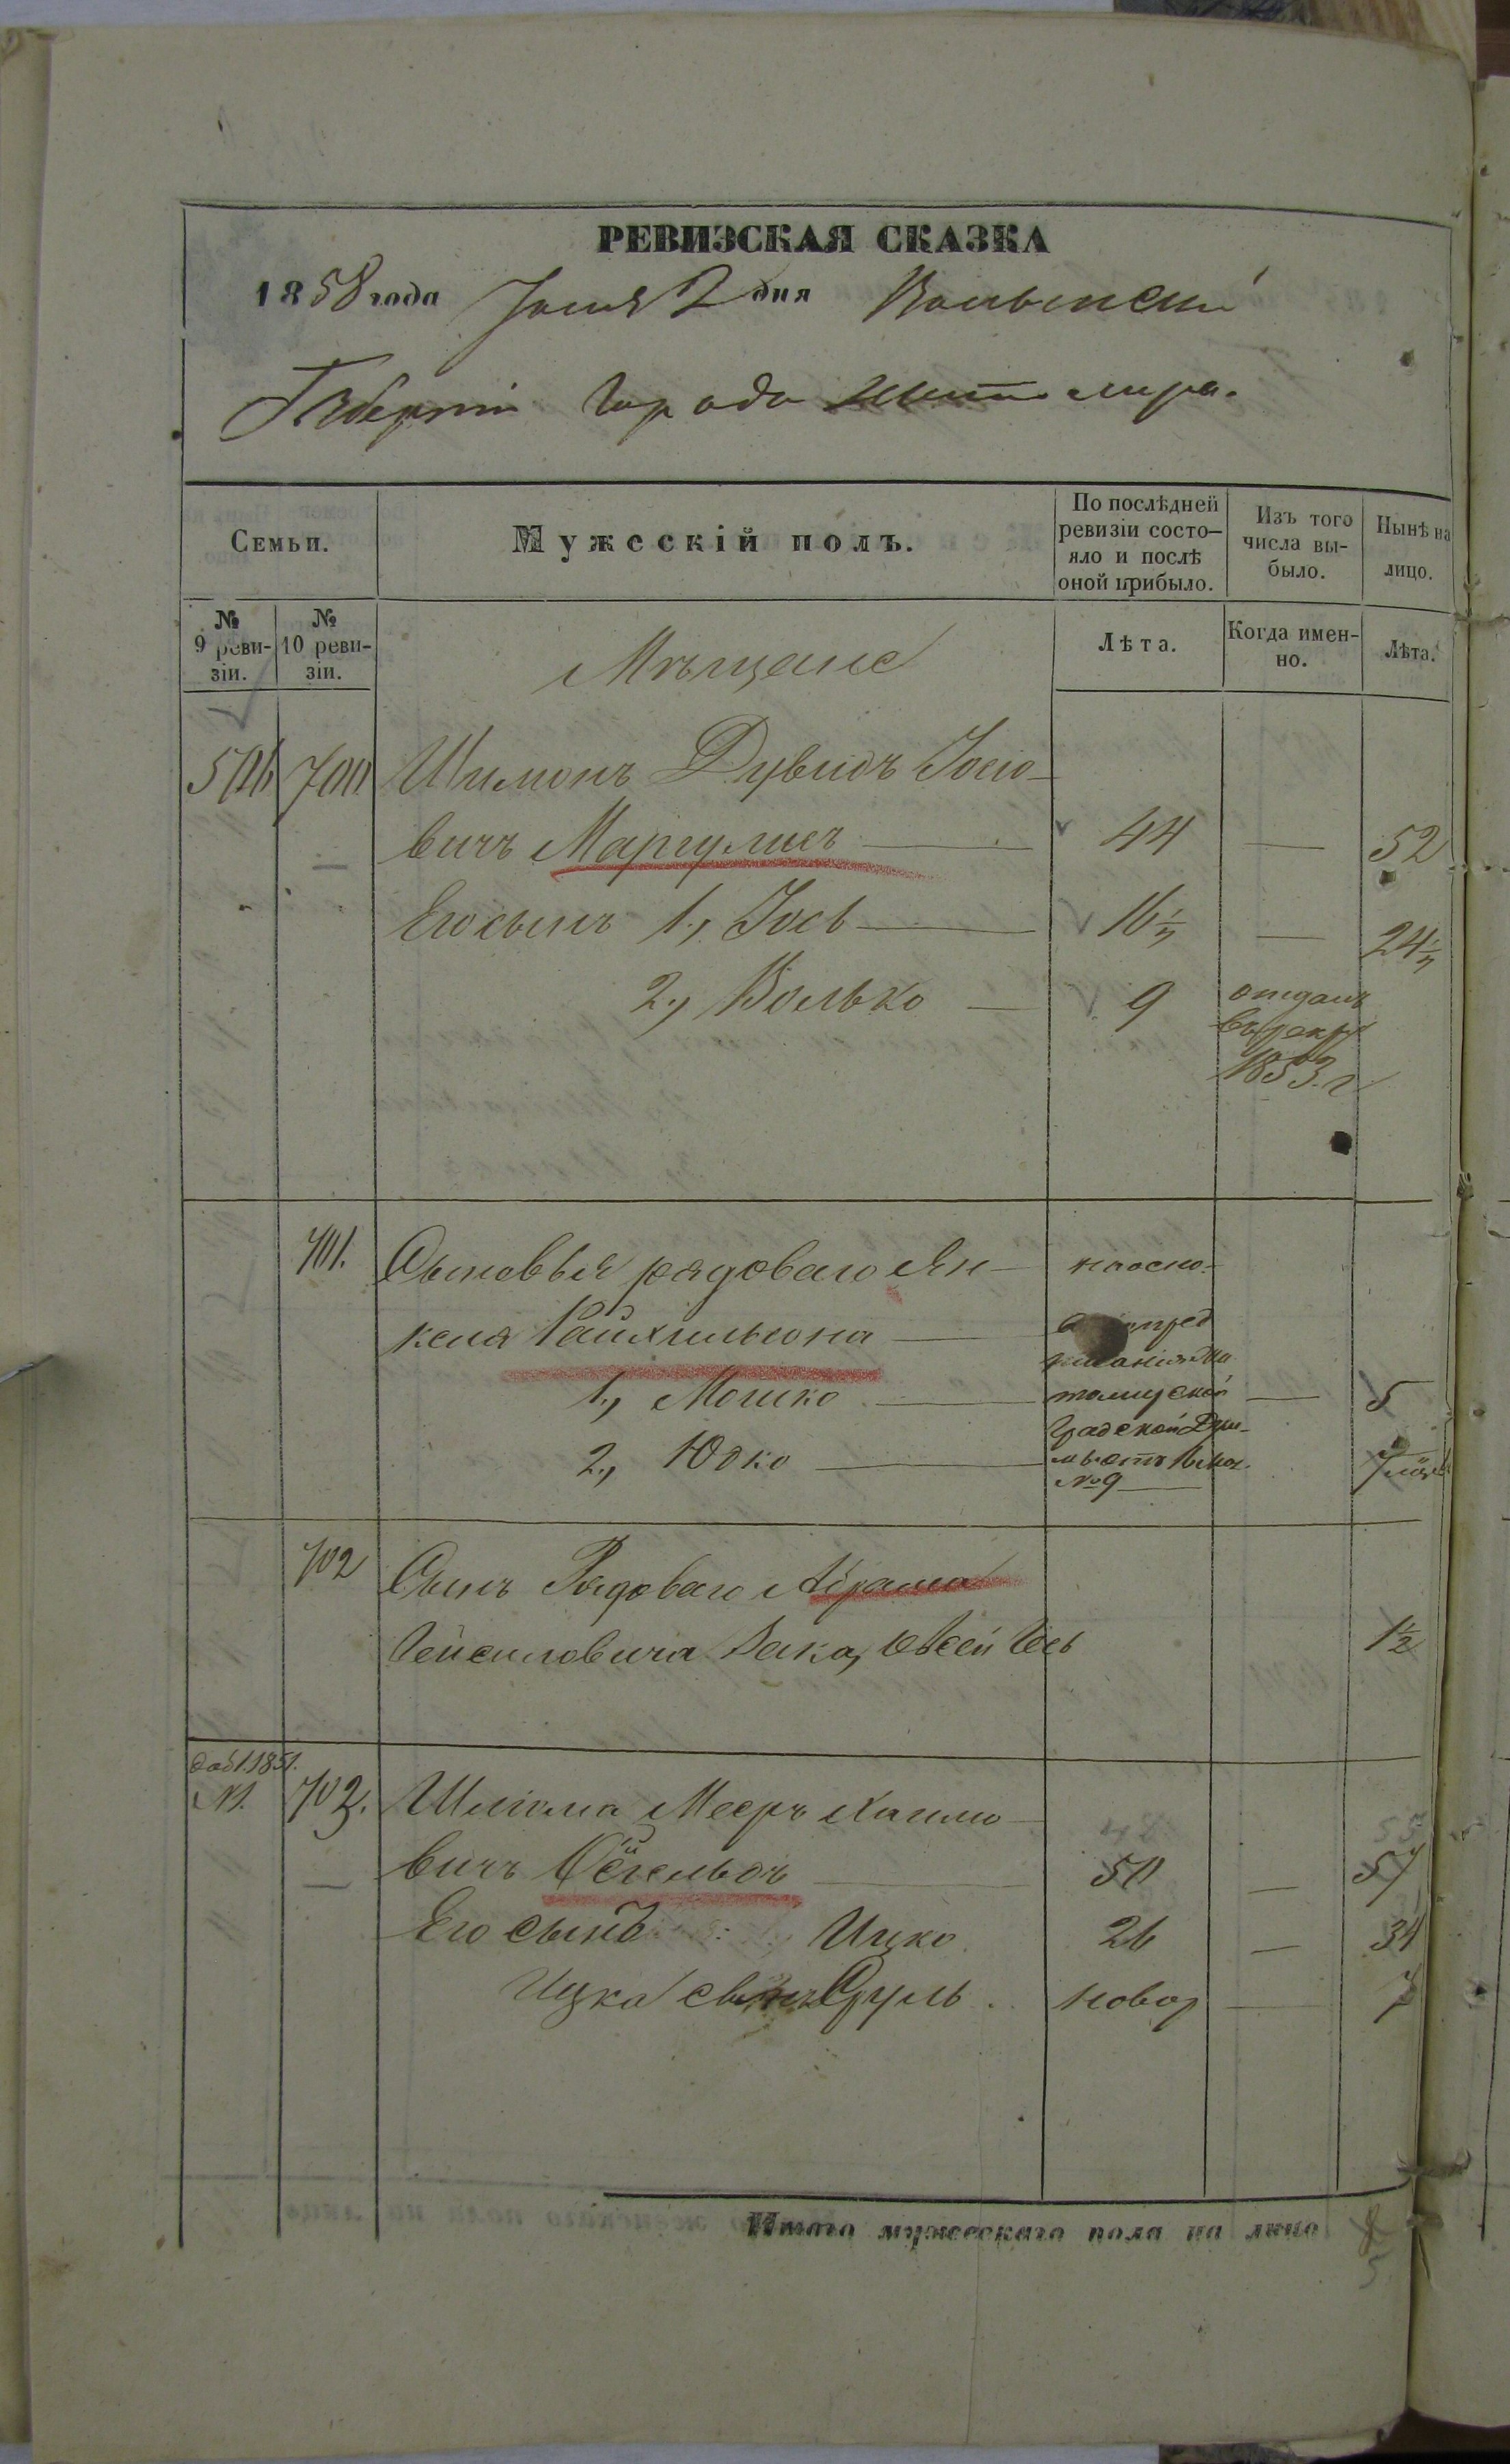 РЕВИЗСКАЯ СКАЗКА
1858 года Іюня 2 дня Волынской
Губерніи Города Житомира.
Семьи.
Мужескій полъ.
По послѣдней ревизіи состо-
яло и послѣ оной прибыло.
Изъ того числа вы-
было.
Нынѣ на лицо.
№ 9 реви-
зіи.
№ 10 реви-
зіи.
Мѣщане
Лѣта.
Когда имен-
но.
Лѣта.
700 Шимонъ Дувидъ Іосіо-
вичъ Маргулисъ 44 — 52
Его сынъ 1, Іось 16 — 24
2, Волько 9 отданъ
въ рекру
1853. г
701. Сыновья рядоваго Ян-
келя Райхильсона
1, Мошко — 5
2, Юдко
наосно-
Градской Ду-
№9
702 Сынъ Рядоваго Абрама
Зака, Евсей Іось 1½
1851.
№1. 703. Шліома Мееръ Хаимо-
вичъ 48 50 — 55 57
Его сынъ Ицко 26 — 34
Ицка сынъ Сруль новор — 7
Итого мужескаго пола на лицо 8
5